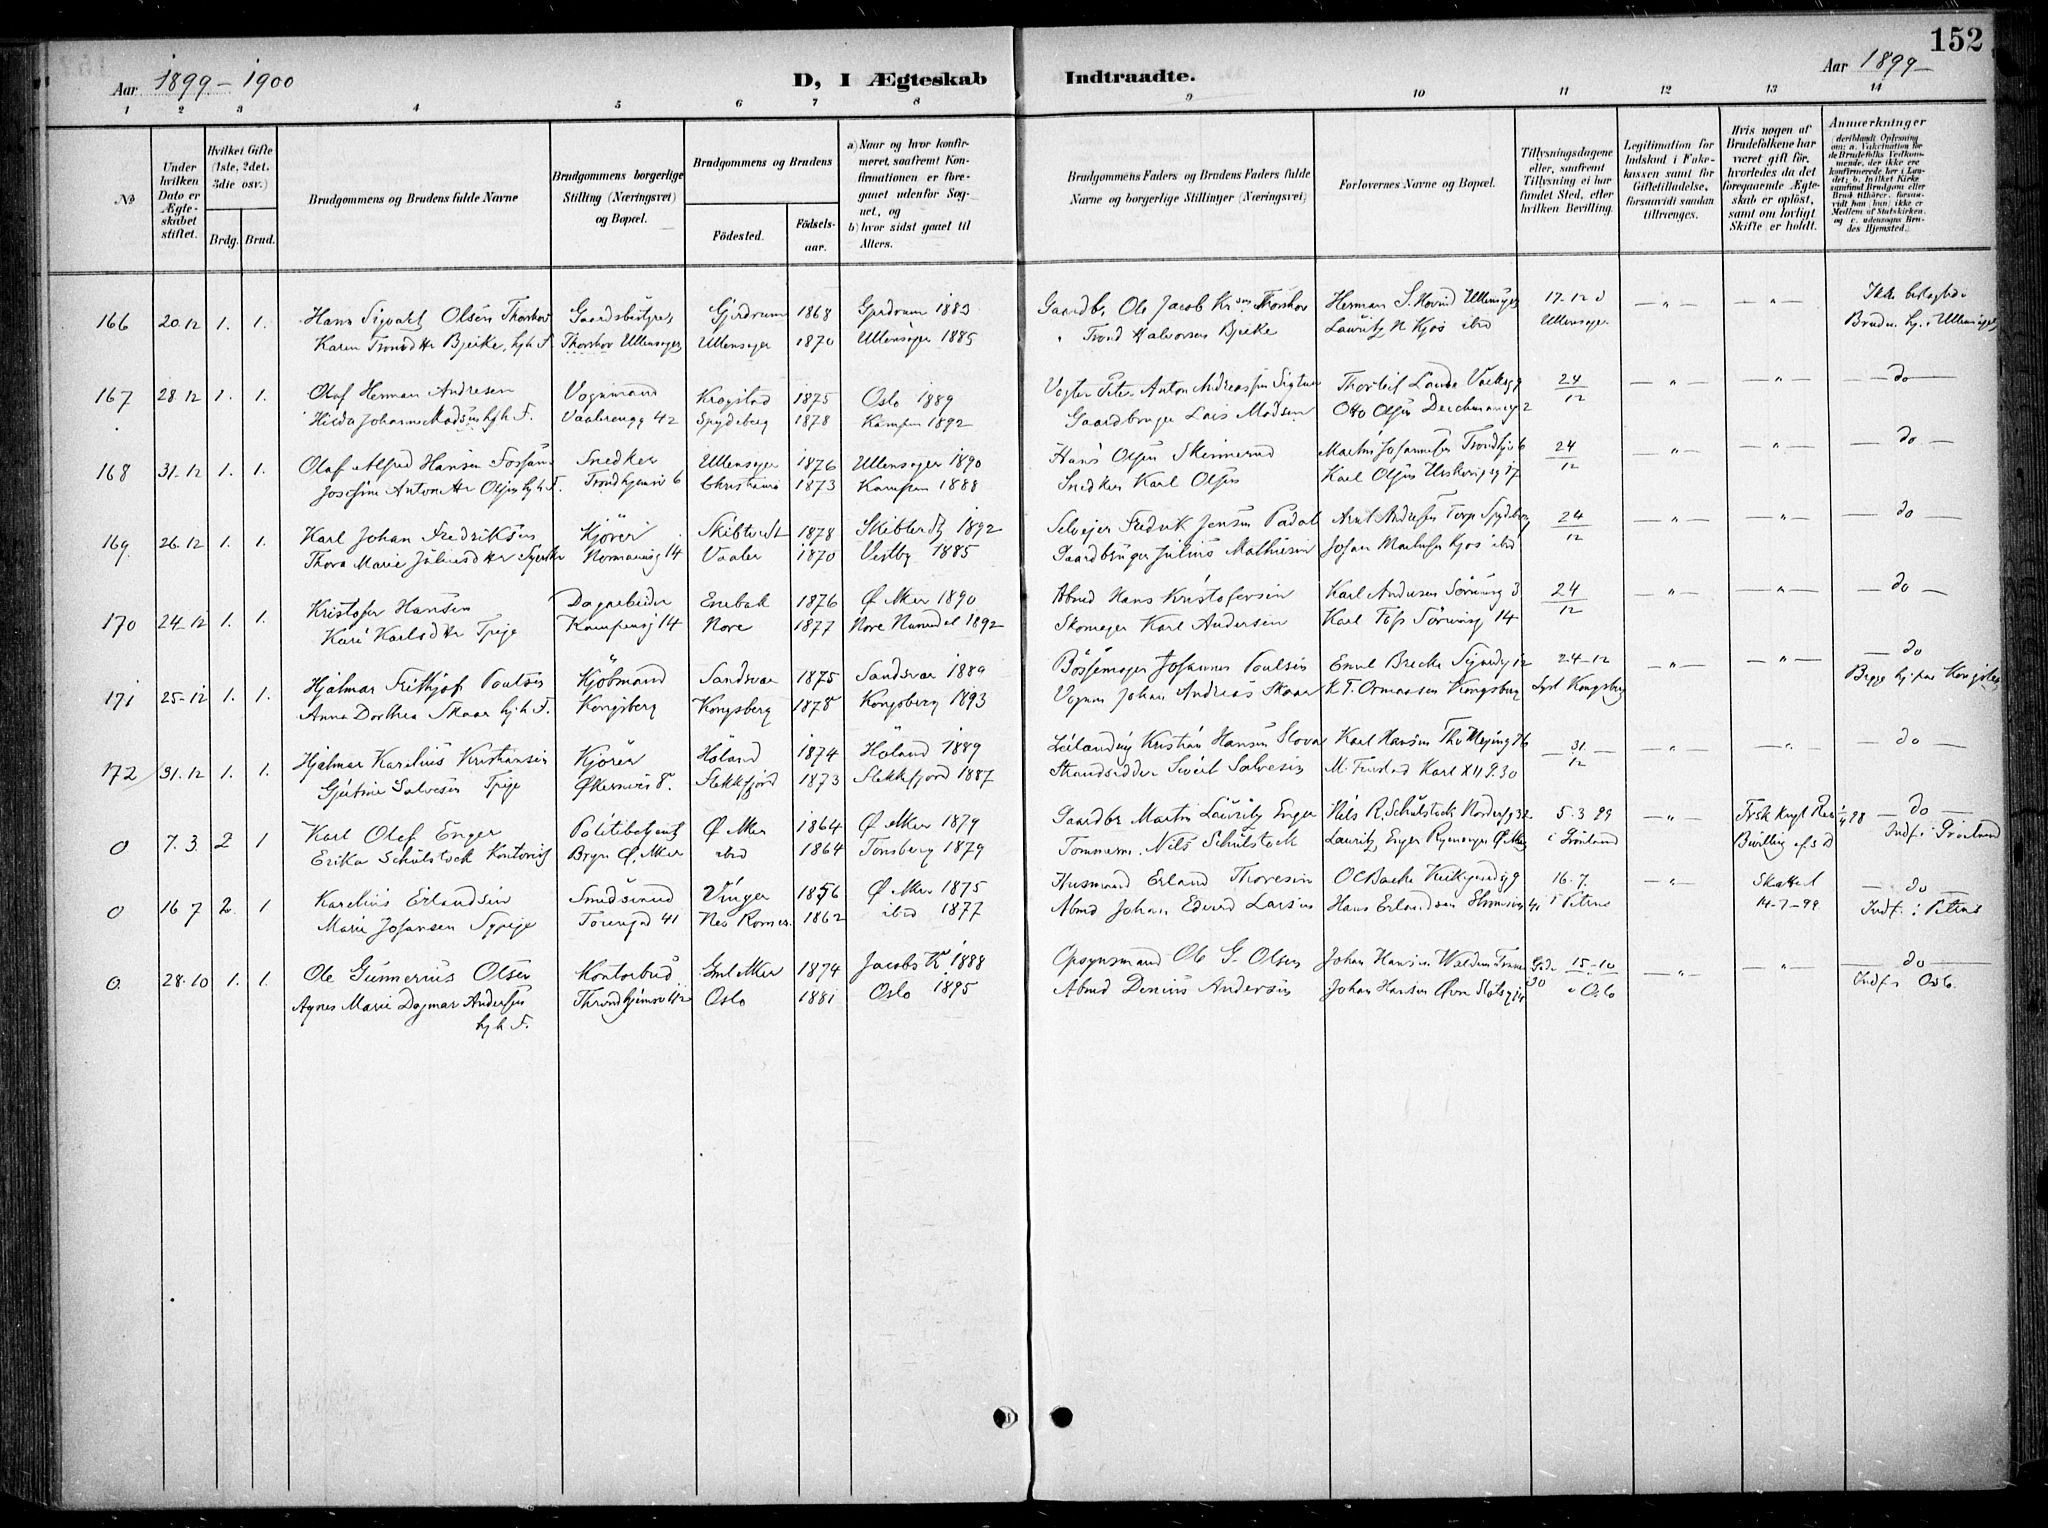 152
Aar 1899-1900 D, I Ægteskab Indtraadte. Aar 1899
1 2 3 4 5 6 7 8 9 10 11 12 13 14
No
Under hvilken Dato er Ægteskabet stiftet.
Hvilket Gifte (1ste, 2det, 3die osv.)
Brdg. Brud.
Brudgommens og Brudens fulde Navne
Brudgommens borgerlige Stilling (Næringsvei) og Bopæl.
Brudgommens og Brudens
Födested. Födselsaar.
a) Naar og hvor konfirmeret, saafremt Konfirmationen er foregaaet udenfor Sognet, og
b) hvor sidst gaaet til Alters.
Brudgommens Faders og Brudens Faders fulde Navne og borgerlige Stillinger (Næringsvei)
Forlovernes Navne og Bopæl.
Tillysningsdagene eller, saafremt Tillysning ei har fundet Sted, efter hvilken Bevilling.
Legitimation for Indskud i Enkekassen samt for Giftetilladelse, forsaavidt saadan tiltrænges.
Hvis nogen af Brudefolkene har været gift för, hvorledes da det foregaaende Ægteskab er oplöst, samt om lovligt Skifte er holdt.
Anmærkninger
166 20.12 1. 1. Hans Sigvart Olsen Thorshov Gaardsbestyrer Gjerdrum 1868 Gjerdrum 1883 Gaardb. Ole Jacob Krsen Thorshov Herman S. Hovind Ullensager 17-12 i — " — — " —
Karen Bjerke, hjh F. Thorshov Ullensager Ullensager 1870 Ullensager 1885 " Trond Halvorsen Bjerke Lauritz N Kjos ibid Ullensager Brudn. hj. i Ullensager
167 28 12 1. 1. Olaf Herman Andresen Vognmand Krogstad 1875 Oslo 1889 Vogter Peter Anton Andreassen 24/12 — " — — " — — do —
Hilda Johanne Madsen hjh F. Vaalerengg 42 Spydeberg 1878 Kampen 1892 Gaardbruger Lars Madsen Otto Olsen Deichmansg 2
168 31.12 1. 1. Olaf Alfred Hansen Snedker Ullensager 1876 Ullensager 1890 Hans Olsen Skinnerud Martin Johannesen Trondhjv 6 24/12 — " — — " — — do —
Josefine Olsen hjh F. Trondhjemsv 6 Christiania 1873 Kampen 1888 Snedker Karl Olsen Karl Olsen 17
169 26.12 1. 1. Karl Johan Fredriksen Kjörer Skibtvedt 1878 Skibtvedt 1892 Selveier Fredrik Jensen Arnt Andresen Torp Spydeberg 24/12 — " — — " — — do —
Thora Marie Normannsg 14 Vaaler 1870 Vestby 1885 Gaardbruger Julius Mathisen Johan Kjos ibid
170 24.12 1. 1. Kristofer Hansen Dagarbeider Enebak 1876 Ø Aker 1890 Abmd Hans Kristofersen Karl Andersen Sörumg 3 24/12 — " — — " — — do —
Kari Karlsdtr Tpige Kampensg 14 Nore 1877 Nore Numedal 1892 Skomager Karl Andersen Karl Foss Sörumg 14
171 25.12 1. 1. Hjalmar Frithjof Poulsen Kjöbmand Sandsvær 1875 Sandsvær 1889 Bössemager Johannes Poulsen Emil Brecke 12 24-12 — " — — " — — do —
Anna Dorthea Skaar hjh F. Kongsberg Kongsberg 1878 Kongsberg 1893 Vognm Johan Andreas Skaar K. T. Ormaasen Kongsberg Lyst Kongsberg Begge hj. paa Kongsberg
172 31.12 1. 1. Hjalmar Karelius Kristiansen Kjörer Höland 1874 Höland 1889 Kristian Hansen Slora Karl Hansen Th Meyersg 76 31/12 — " — — " — — do —
Gjertine Salvesen Tpige Økernvei 8. Flekkefjord 1873 Flekkefjord 1887 Strandsidder Sivert Salvesen M. Finstad Karl XII g. 30
0 7.3. 2 1 Karl Olaf Enger Politibetjent Ø Aker 1864 Ø Aker 1879 Gaardbr Martin Lauritz Enger Nils R. Schulstock Norderg 32 5.3.99 — " — — do —
Erika Schulstock Kontorist Bryn Ø. Aker ibid 1864 Tönsberg 1879 Tömmerm. Nils Schulstock Lauritz Enger Ø Aker i Grönland Indf. i Grönland
0 16 7 2. 1 Karelius Erlandsen Smedsvend Vinger 1856 Ø Aker 1875 Husmand Erland Thoresen O C Bache 9 16.7. — " — — do —
Marie Johansen Sypige 41 Nes Romer. 1862 ibid 1877 Abmd Johan Edvard Larsen Hans Erlandsen 41 i Petrus 14-7-99 Indf. i Petrus
0. 28.10 1. 1. Ole Gunnerius Olsen Kontorbud Gml Aker 1874 Jacobs K. 1888 Opsynsmand Ole G. Olsen Johan Hansen 30 15-10 — " — — " — — do —
Agnes Marie Dagmar Andersen Throndhjemsv 42 Oslo 1881 Oslo 1895 Abmd Denius Andersen Johan Hansen Øvre Slotsg 14 i Oslo Indf i Oslo.
hjh F.